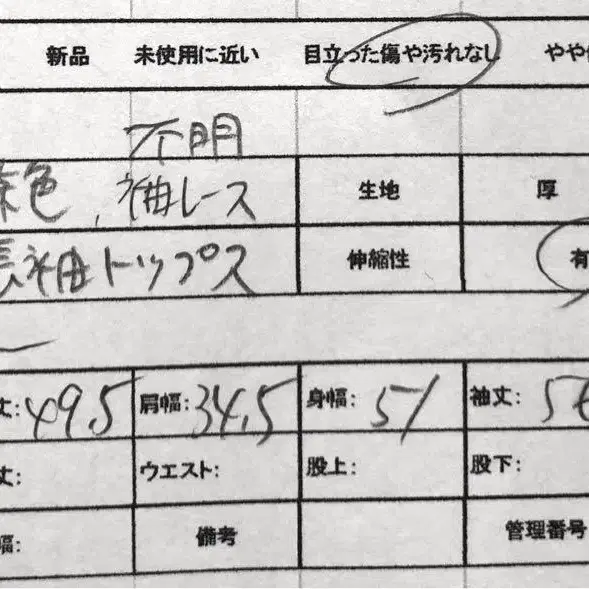 新品 未使用に近い 目立った傷や汚れなし やや
不明
茶色、袖レース 生地 厚
長袖トップス 伸縮性 有
丈:49.5 肩幅:34.5 身幅:51 袖丈:5
丈: ウエスト: 股上: 股下:
幅: 備考 管理番号